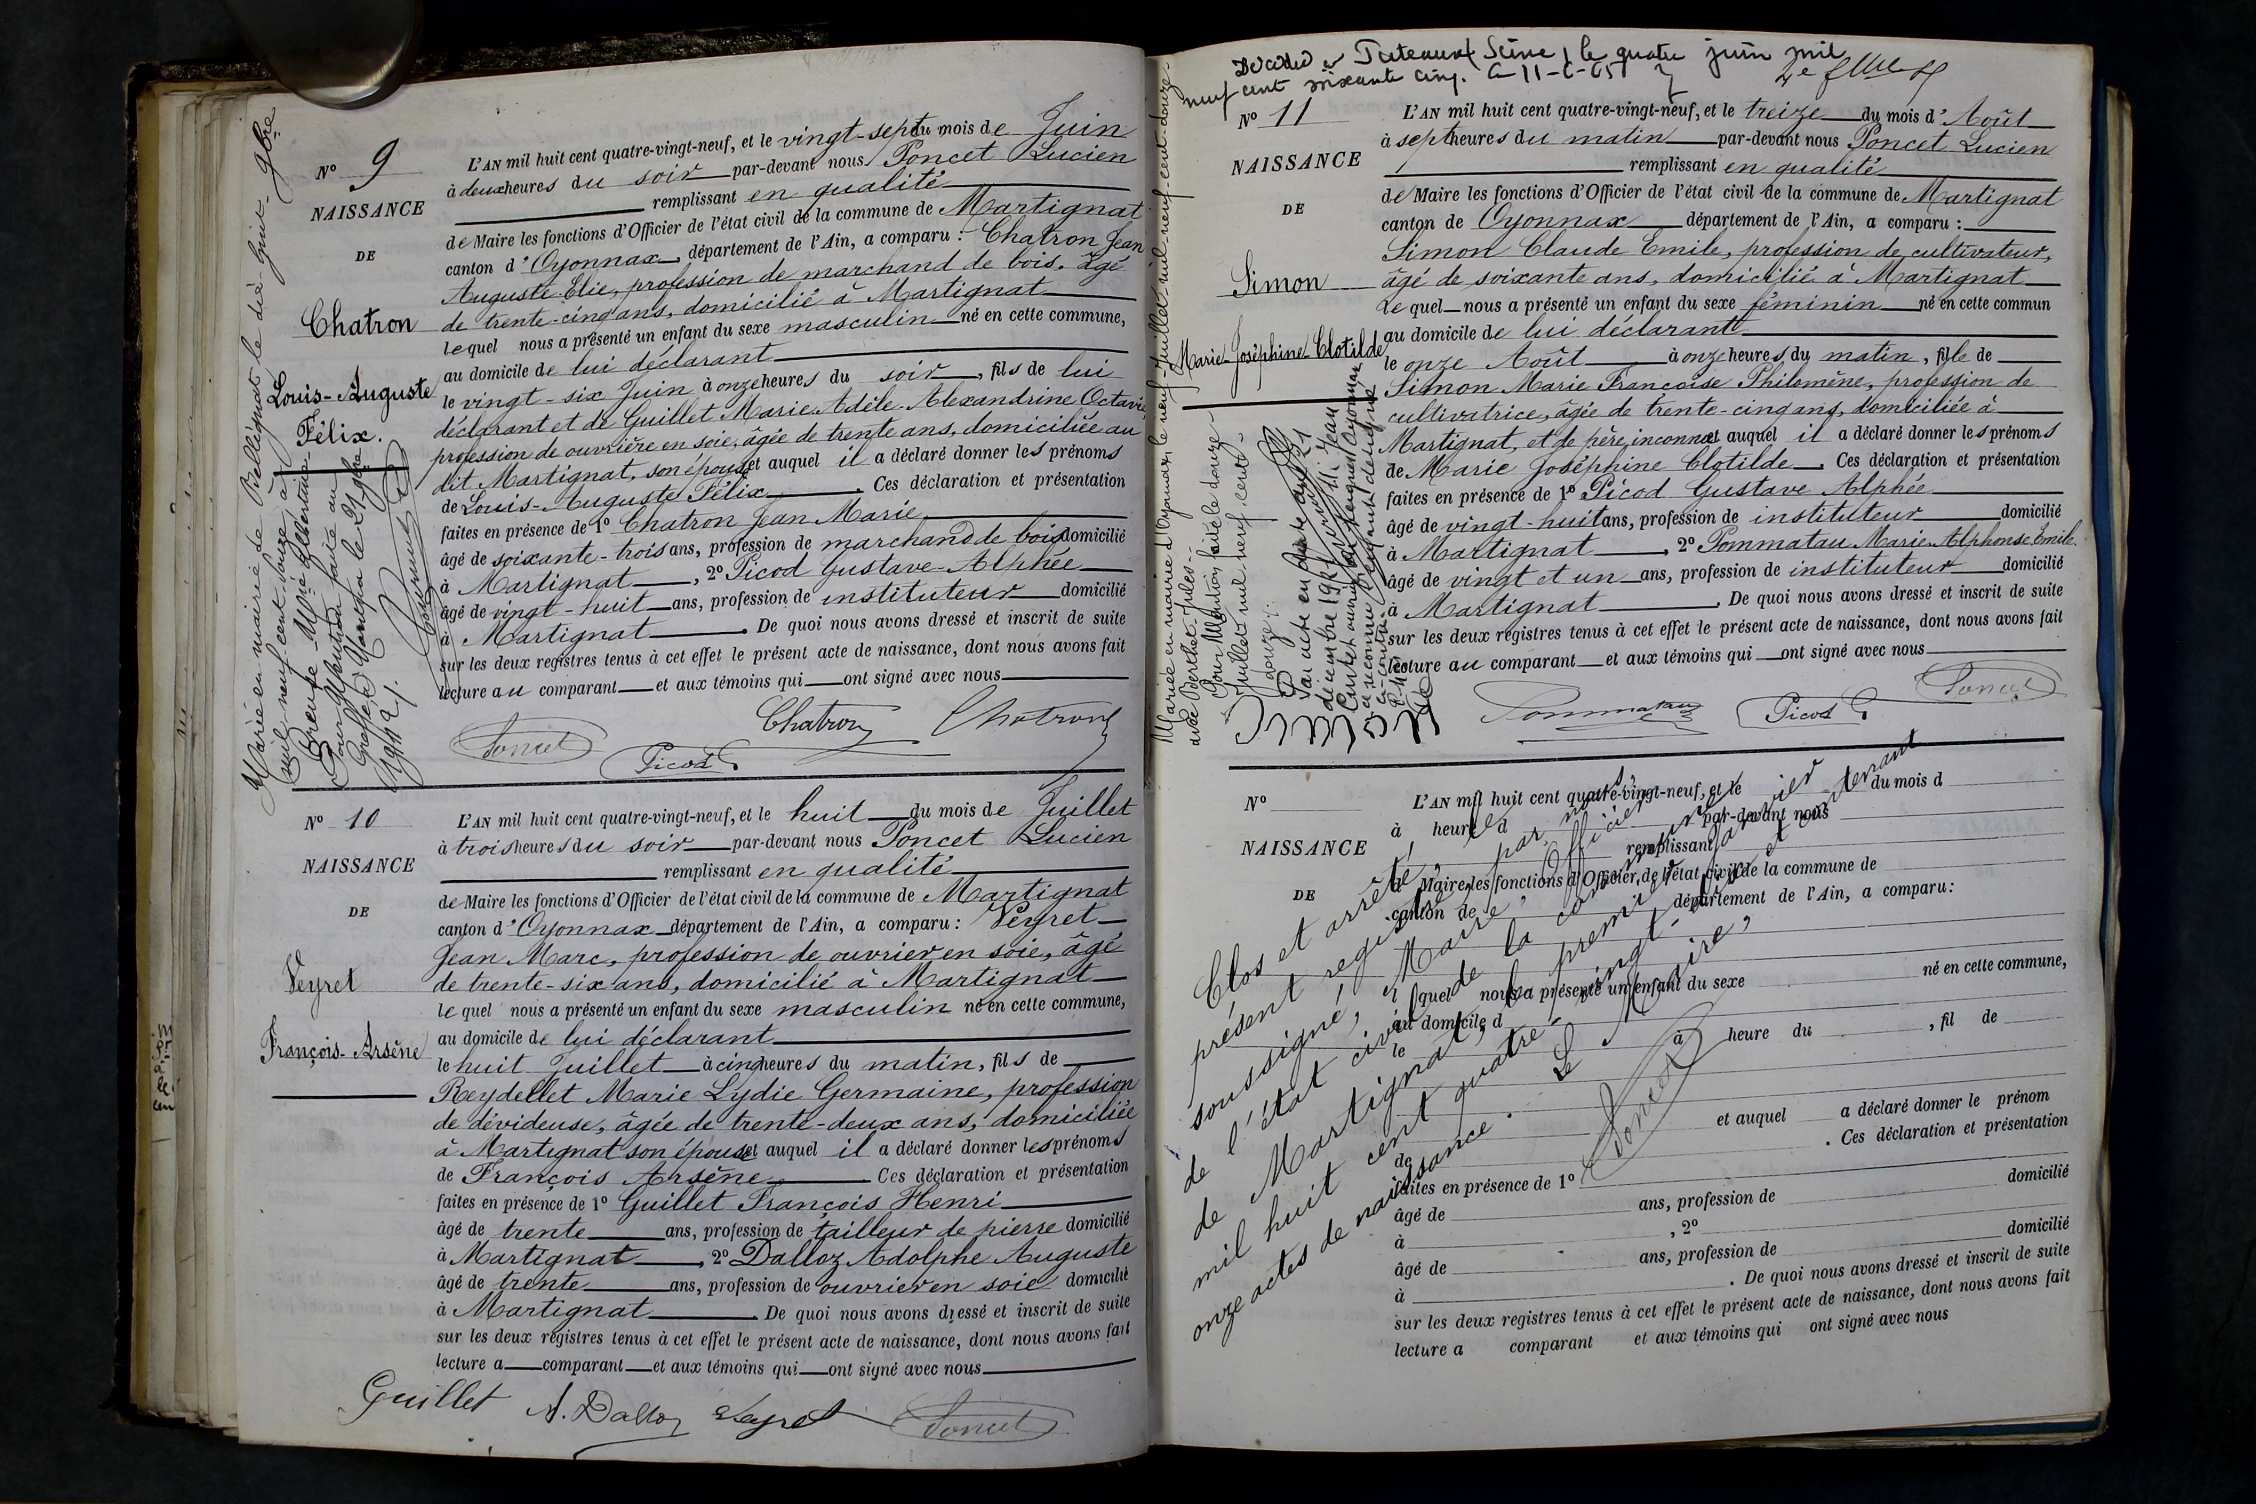 Nº 9
NAISSANCE
DE
Chatron
Louis-Auguste
Félix.
L'AN mil huit cent quatre-vingt-neuf, et le vingt-sept du mois de Juin
à deux heures du soir par-devant nous Poncet Lucien
remplissant en qualité
de Maire les fonctions d'Officier de l'état civil de la commune de Martignat
canton d'Oyonnax, département de l'Ain, a comparu : Chatron Jean
Auguste Elie, profession de marchand de bois, âgé
de trente-cinq ans, domicilié à Martignat
lequel nous a présenté un enfant du sexe masculin né en cette commune,
au domicile de lui déclarant
le vingt-six Juin à onze heures du soir, fils de lui
déclarant et de Guillet Marie Adèle Alexandrine Octavie
profession de ouvrière en soie, âgée de trente ans, domiciliée au
dit Martignat, son épouse et auquel il a déclaré donner les prénoms
de Louis-Auguste Félix. Ces déclaration et présentation
faites en présence de 1º Chatron Jean Marie
âgé de soixante-trois ans, profession de marchand de bois domicilié
à Martignat, 2º Picod Gustave-Alphée
âgé de vingt-huit ans, profession de instituteur domicilié
à Martignat. De quoi nous avons dressé et inscrit de suite
sur les deux registres tenus à cet effet le présent acte de naissance, dont nous avons fait
lecture au comparant et aux témoins qui ont signé avec nous
Poncet Picod Chatron Chatron
Marié en mairie de Bellignat le dix-huit 9bre
mil neuf cent douze, à
Nº 10
NAISSANCE
DE
Veyret
François-Arsène
L'AN mil huit cent quatre-vingt-neuf, et le huit du mois de Juillet
à trois heures du soir par-devant nous Poncet Lucien
remplissant en qualité
de Maire les fonctions d'Officier de l'état civil de la commune de Martignat
canton d'Oyonnax département de l'Ain, a comparu : Veyret
Jean Marc, profession de ouvrier en soie, âgé
de trente-six ans, domicilié à Martignat
lequel nous a présenté un enfant du sexe masculin né en cette commune,
au domicile de lui déclarant
le huit Juillet à cinq heures du matin, fils de
Reydellet Marie Lydie Germaine, profession
de dévideuse, âgée de trente-deux ans, domiciliée
à Martignat son épouse et auquel il a déclaré donner les prénoms
de François Arsène Ces déclaration et présentation
faites en présence de 1º Guillet François Henri
âgé de trente ans, profession de tailleur de pierre domicilié
à Martignat, 2º Dalloz Adolphe Auguste
âgé de trente ans, profession de ouvrier en soie domicilié
à Martignat. De quoi nous avons dressé et inscrit de suite
sur les deux registres tenus à cet effet le présent acte de naissance, dont nous avons fait
lecture a comparant et aux témoins qui ont signé avec nous
Guillet A. Dalloz Veyret Poncet
Décédée à Puteaux Seine, le quatre juin mil
neuf cent soixante cinq.
Nº 11
NAISSANCE
DE
Simon
Marie-Joséphine-Clotilde
L'AN mil huit cent quatre-vingt-neuf, et le treize du mois d'Août
à sept heures du matin par-devant nous Poncet Lucien
remplissant en qualité
de Maire les fonctions d'Officier de l'état civil de la commune de Martignat
canton de Oyonnax département de l'Ain, a comparu :
Simon Claude Emile, profession de cultivateur,
âgé de soixante ans, domicilié à Martignat
Le quel nous a présenté un enfant du sexe féminin né en cette commun
au domicile de lui déclarant
le onze Août à onze heures du matin, fille de
Simon Marie Françoise Philomène, profession de
cultivatrice, âgée de trente-cinq ans, domiciliée à
Martignat, et de père inconnu et auquel il a déclaré donner les prénoms
de Marie Joséphine Clotilde. Ces déclaration et présentation
faites en présence de 1º Picod Gustave Alphée
âgé de vingt-huit ans, profession de instituteur domicilié
à Martignat, 2º Pommatau Marie Alphonse Emile
âgé de vingt et un ans, profession de instituteur domicilié
à Martignat. De quoi nous avons dressé et inscrit de suite
sur les deux registres tenus à cet effet le présent acte de naissance, dont nous avons fait
lecture au comparant et aux témoins qui ont signé avec nous
Simon Pommatau Picod Poncet
Mariée en mairie d'Oyonnax le neuf Juillet mil neuf cent douze
avec Berthet Jules
Pour Mention faite le douze
Juillet mil neuf cent
douze
Nº
NAISSANCE
DE
L'AN mil huit cent quatre-vingt-neuf, et le du mois d
à heure d par-devant nous
remplissant
d Maire les fonctions d'Officier de l'état civil de la commune de
canton de département de l'Ain, a comparu :
quel nous a présenté un enfant du sexe né en cette commune,
au domicile d
le à heure du , fil de
et auquel a déclaré donner le prénom
de . Ces déclaration et présentation
faites en présence de 1º
âgé de ans, profession de domicilié
à , 2º
âgé de ans, profession de domicilié
à . De quoi nous avons dressé et inscrit de suite
sur les deux registres tenus à cet effet le présent acte de naissance, dont nous avons fait
lecture a comparant et aux témoins qui ont signé avec nous
Clos et arrêté, le
présent registre, par nous
soussigné, Maire, Officier
de l'état civil de la commune
de Martignat, le premier janvier
mil huit cent quatre-vingt-dix et contenant
onze actes de naissance. Le Maire,
Poncet